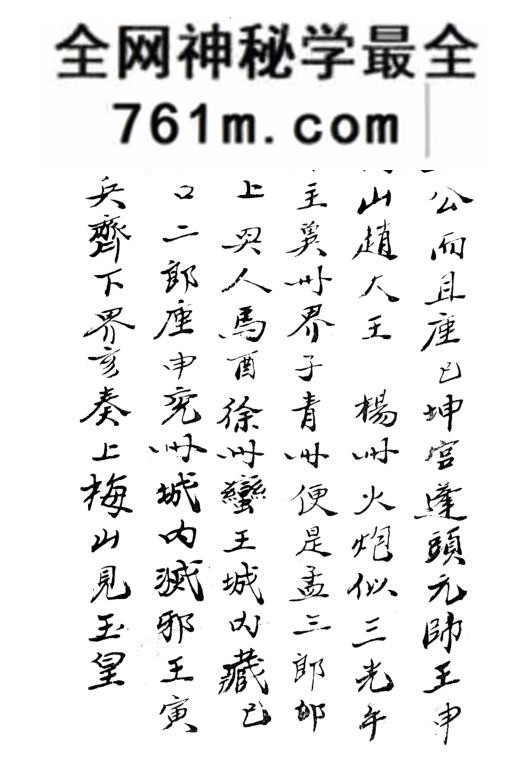 全网神秘学最全
761m.com
公而且座巳坤宫蓬頭元帥王申
山趙大王 楊州火炮似三光午
主冀州界子青州便是孟三郎
上界人馬酉徐州蠻王城内藏巳
口二郎座申兖州城内滅邪王寅
兵齊下界亥奏上梅山見玉皇